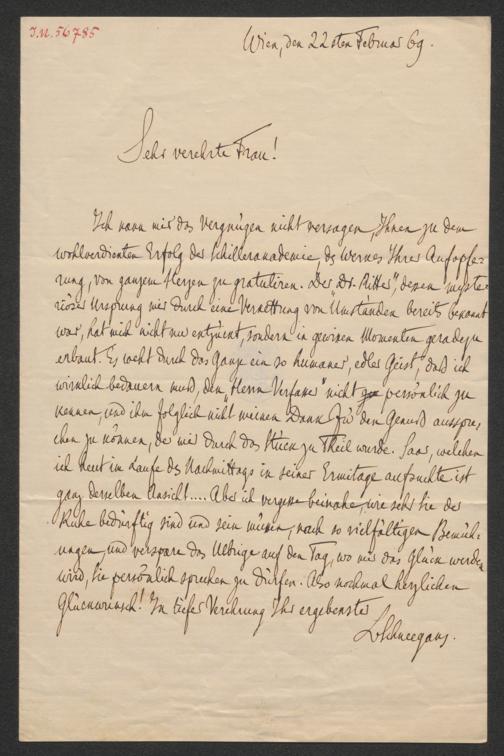 I.N. 56785
Wien, den 22sten Februar 69.
Sehr verehrte Frau!
Ich kann mir das Vergnügen nicht versagen, Ihnen zu dem
wohlverdienten Erfolg der Schillerakademie, des Werkes Ihrer Aufopfe-
rung, von ganzem Herzen zu gratuliren. Der "Dr. Ritter", dessen myste-
riöser Ursprung mir durch eine Verkettung von Umständen bereits bekannt
war, hat mich nicht nur entzückt, sondern in gewissen Momenten geradezu
erbaut. Es weht durch das Ganze ein so humaner, edler Geist, daß ich
wirklich bedauern muß, den "Herrn Verfasser" nicht persönlich zu
kennen, und ihm folglich nicht meinen Dank für den Genuß ausspre-
chen zu können, der mir durch das Stück zu Theil wurde. Saar, welchen
ich heut im Laufe des Nachmittags in seiner Ermitage aufsuchte ist
ganz derselben Ansicht.... Aber ich vergesse beinahe, wie sehr Sie der
Ruhe bedürftig sind und sein müssen, nach so vielfältigen Bemüh-
ungen und verspare das Uebrige auf den Tag, wo mir das Glück werden
wird, Sie persönlich sprechen zu dürfen. Also nochmal herzlichen
Glückwunsch! In tiefer Verehrung Ihr ergebenster
LSchneegans.